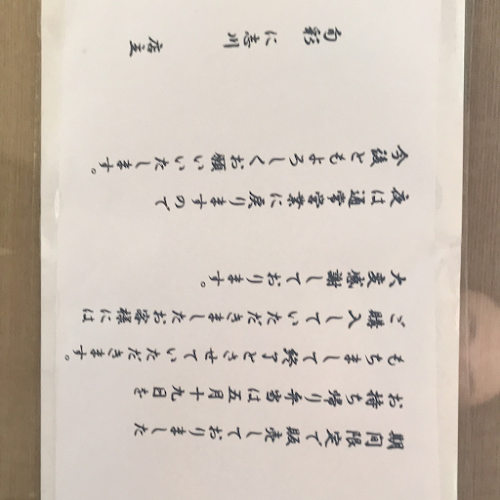 期間限定で販売しておりました
お持ち帰り弁当は五月十九日を
もちまして終了とさせていただきます。
ご購入していただきましたお客様には
大変感謝しております。
夜は通常営業に戻りますので
今後ともよろしくお願いいたします。
旬彩 に志川 店主